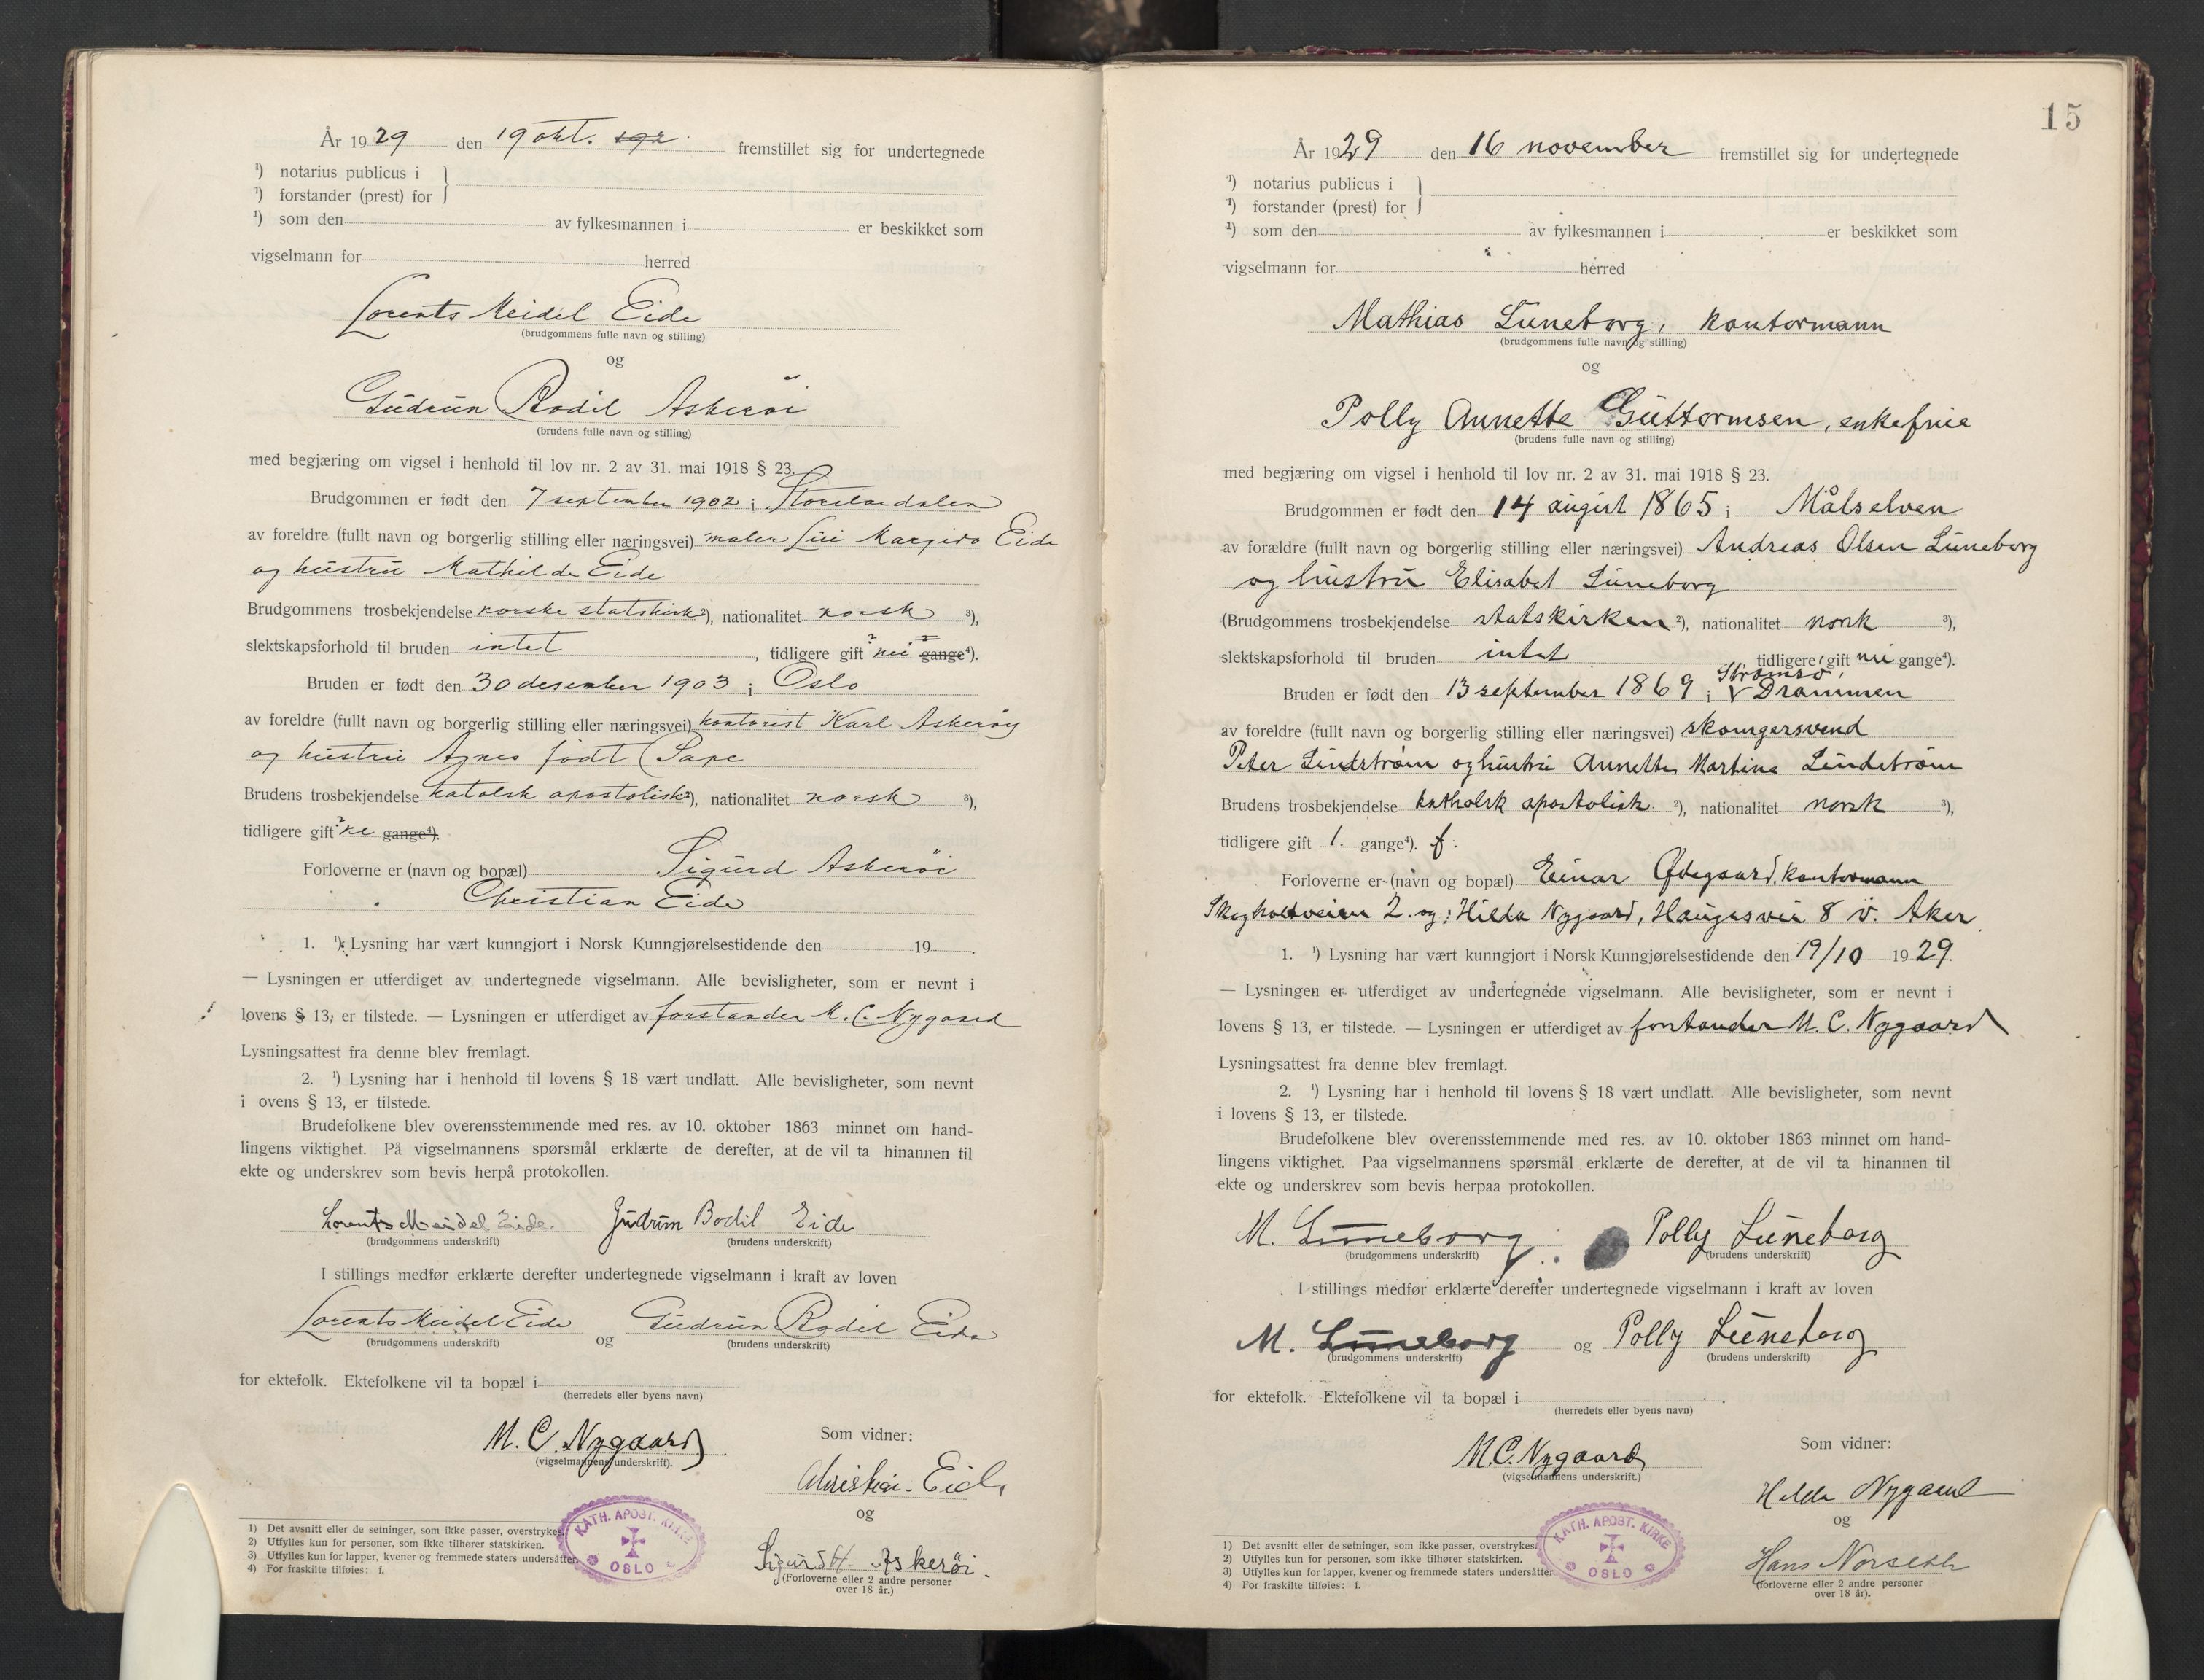 År 1929 den 19 okt. fremstillet sig for undertegnede
¹) notarius publicus i
¹) forstander (prest) for
¹) som den av fylkesmannen i er beskikket som
vigselmann for herred
Lorents Meidel Eide
(brudgommens fulle navn og stilling)
og
Gudrun Bodil Askerøi
(brudens fulle navn og stilling)
med begjæring om vigsel i henhold til lov nr. 2 av 31. mai 1918 § 23.
Brudgommen er født den 7 september 1902 i
av foreldre (fullt navn og borgerlig stilling eller næringsvei) maler Eide
og hustru Mathilde Eide
Brudgommens trosbekjendelse norske statskirke ²), nationalitet norsk ³),
slektskapsforhold til bruden intet, tidligere gift nei gange⁴).
Bruden er født den 30 desember 1903 i Oslo
av foreldre (fullt navn og borgerlig stilling eller næringsvei) kontorist Karl Askerøy
og hustru Agnes født
Brudens trosbekjendelse katolsk apostolisk ²), nationalitet norsk ³),
tidligere gift gange⁴).
Forloverne er (navn og bopæl) Sigurd Askerøi
Christian Eide
1. ¹) Lysning har vært kunngjort i Norsk Kunngjørelsestidende den 19 .
— Lysningen er utferdiget av undertegnede vigselmann. Alle bevisligheter, som er nevnt i
lovens § 13, er tilstede. — Lysningen er utferdiget av forstander M. C. Nygaard
Lysningsattest fra denne blev fremlagt.
2. ¹) Lysning har i henhold til lovens § 18 vært undlatt. Alle bevisligheter, som nevnt
i ovens § 13, er tilstede.
Brudefolkene blev overensstemmende med res. av 10. oktober 1863 minnet om hand-
lingens viktighet. På vigselmannens spørsmål erklærte de derefter, at de vil ta hinannen til
ekte og underskrev som bevis herpå protokollen.
Lorents Meidel Eide. Gudrun Bodil Eide
(brudgommens underskrift) (brudens underskrift)
I stillings medfør erklærte derefter undertegnede vigselmann i kraft av loven
Lorents Meidel Eide og Gudrun Bodil Eide
(brudgommens underskrift) (brudens underskrift)
for ektefolk. Ektefolkene vil ta bopæl i
(herredets eller byens navn)
M. C. Nygaard
(vigselmannens underskrift).
Som vidner:
Christian Eide
og
Sigurd H. Askerøi.
(Forloverne eller 2 andre personer
over 18 år.)
1) Det avsnitt eller de setninger, som ikke passer, overstrykes.
2) Utfylles kun for personer, som ikke tilhører statskirken.
3) Utfylles kun for lapper, kvener og fremmede staters undersåtter.
4) For fraskilte tilføies: f.
KATH. APOST. KIRKE
OSLO
15
År 1929 den 16 november fremstillet sig for undertegnede
¹) notarius publicus i
¹) forstander (prest) for
¹) som den av fylkesmannen i er beskikket som
vigselmann for herred
Mathias Luneborg, kontormann
(brudgommens fulle navn og stilling)
og
Polly Annette Guttormsen, enkefrue
(brudens fulle navn og stilling)
med begjæring om vigsel i henhold til lov nr. 2 av 31. mai 1918 § 23.
Brudgommen er født den 14 august 1865 i Målselven
av forældre (fullt navn og borgerlig stilling eller næringsvei) Andreas Olsen Luneborg
og hustru Elisabet Luneborg
(Brudgommens trosbekjendelse statskirken ²), nationalitet norsk ³),
slektskapsforhold til bruden intet tidligere gift nei gange⁴).
Strømsø,
Bruden er født den 13 september 1869 i V Drammen
av foreldre (fullt navn og borgerlig stilling eller næringsvei)
Peter Lindstrøm og hustru Annette Martine Lindstrøm
Brudens trosbekjendelse katholsk apostolisk. ²), nationalitet norsk ³),
tidligere gift 1. gange⁴). f.
Forloverne er (navn og bopæl) Einar Ødegaard, kontormann
Skogholtveien 2. og: Hilda Nygaard, Haugesvei 8 v. Aker
1. ¹) Lysning har vært kunngjort i Norsk Kunngjørelsestidende den 19/10 1929.
— Lysningen er utferdiget av undertegnede vigselmann. Alle bevisligheter, som er nevnt i
lovens § 13, er tilstede. — Lysningen er utferdiget av forstander M. C. Nygaard
Lysningsattest fra denne blev fremlagt.
2. ¹) Lysning har i henhold til lovens § 18 vært undlatt. Alle bevisligheter, som nevnt
i lovens § 13, er tilstede.
Brudefolkene blev overensstemmende med res. av 10. oktober 1863 minnet om hand-
lingens viktighet. Paa vigselmannens spørsmål erklærte de derefter, at de vil ta hinannen til
ekte og underskrev som bevis herpaa protokollen.
M. Luneborg Polly Luneborg
(brudgommens underskrift) (brudens underskrift)
I stillings medfør erklærte derefter undertegnede vigselmann i kraft av loven
M. Luneborg og Polly Luneborg
(brudgommens underskrift) (brudens underskrift)
for ektefolk. Ektefolkene vil ta bopæl i
(herredets eller byens navn)
M. C. Nygaard
(vigselmannens underskrift.)
Som vidner:
Hilda Nygaard
og
Hans Norseth
(forloverne eller 2 andre personer
over 18 år).
1) Det avsnitt eller de setninger, som ikke passer, overstrykes.
2) Utfylles kun for personer, som ikke tilhører statskirken.
3) Utfylles kun for lapper, kvener og fremmede staters undersåtter
4) For fraskilte tilføies: f.
KATH. APOST. KIRKE
OSLO